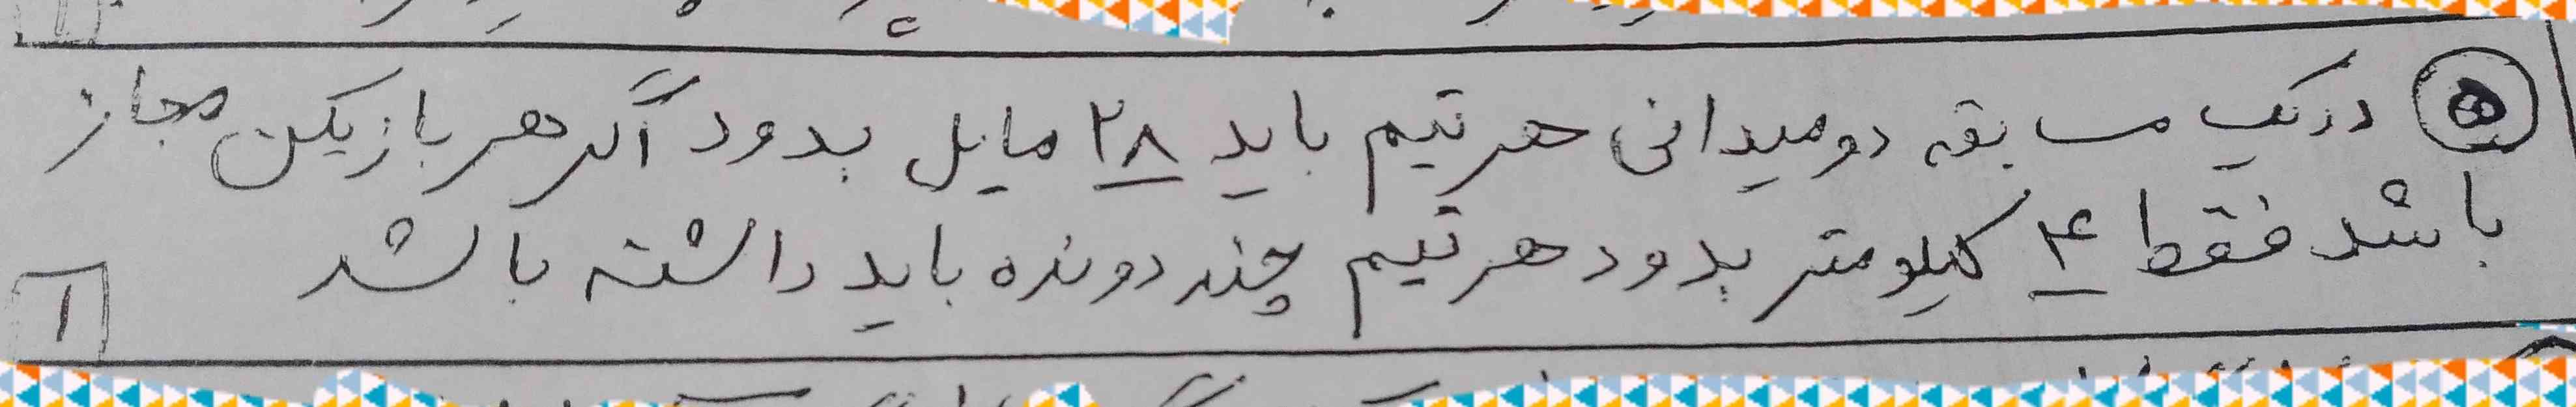 ۵ در یک مسابقه دومیدانی هر تیم باید ۲۸ مایل بدود اگر هر بازیکن مجاز
باشد فقط ۴ کیلومتر بدود هر تیم چند دونده باید داشته باشد
۱